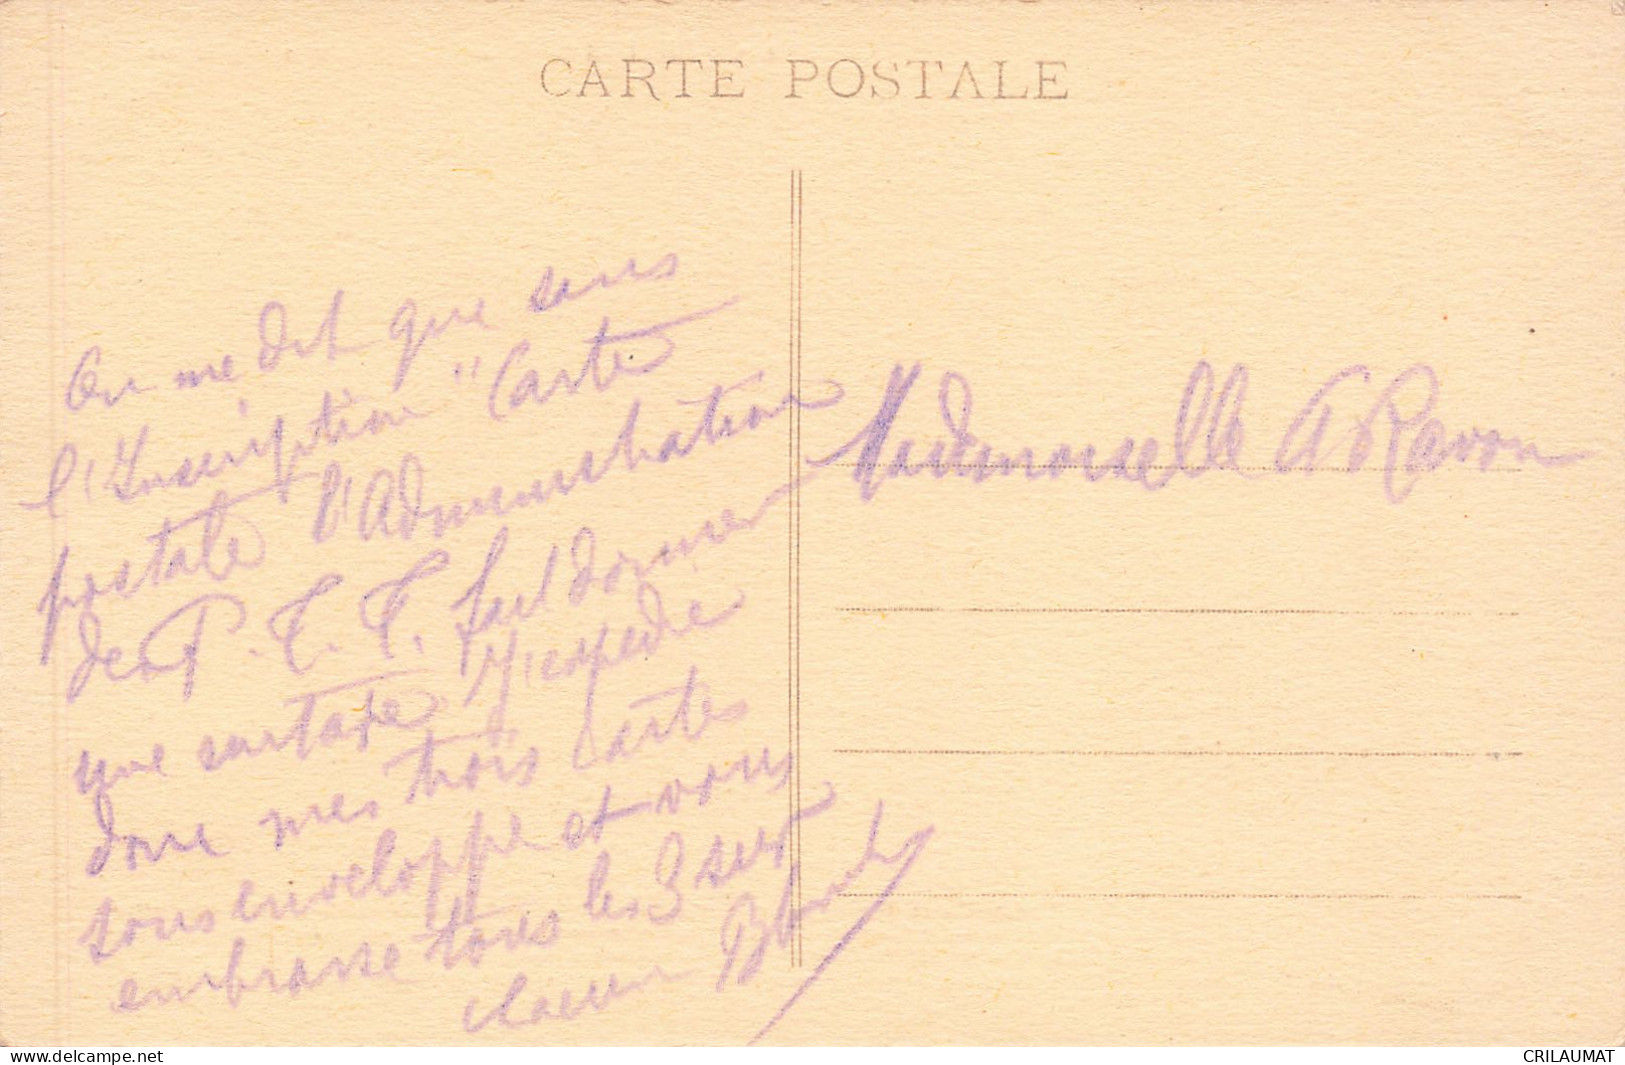 CARTE POSTALE
On me dit que sans
l'Inscription "Carte
postale l'Administration
des P.T.T. fait donner
une surtaxe J'expédie
donc mes trois Cartes
sous enveloppe et vous
embrasse tous les 3 sur
chacune
Mademoiselle A Ravon
www.delcampe.net
CRILAUMAT